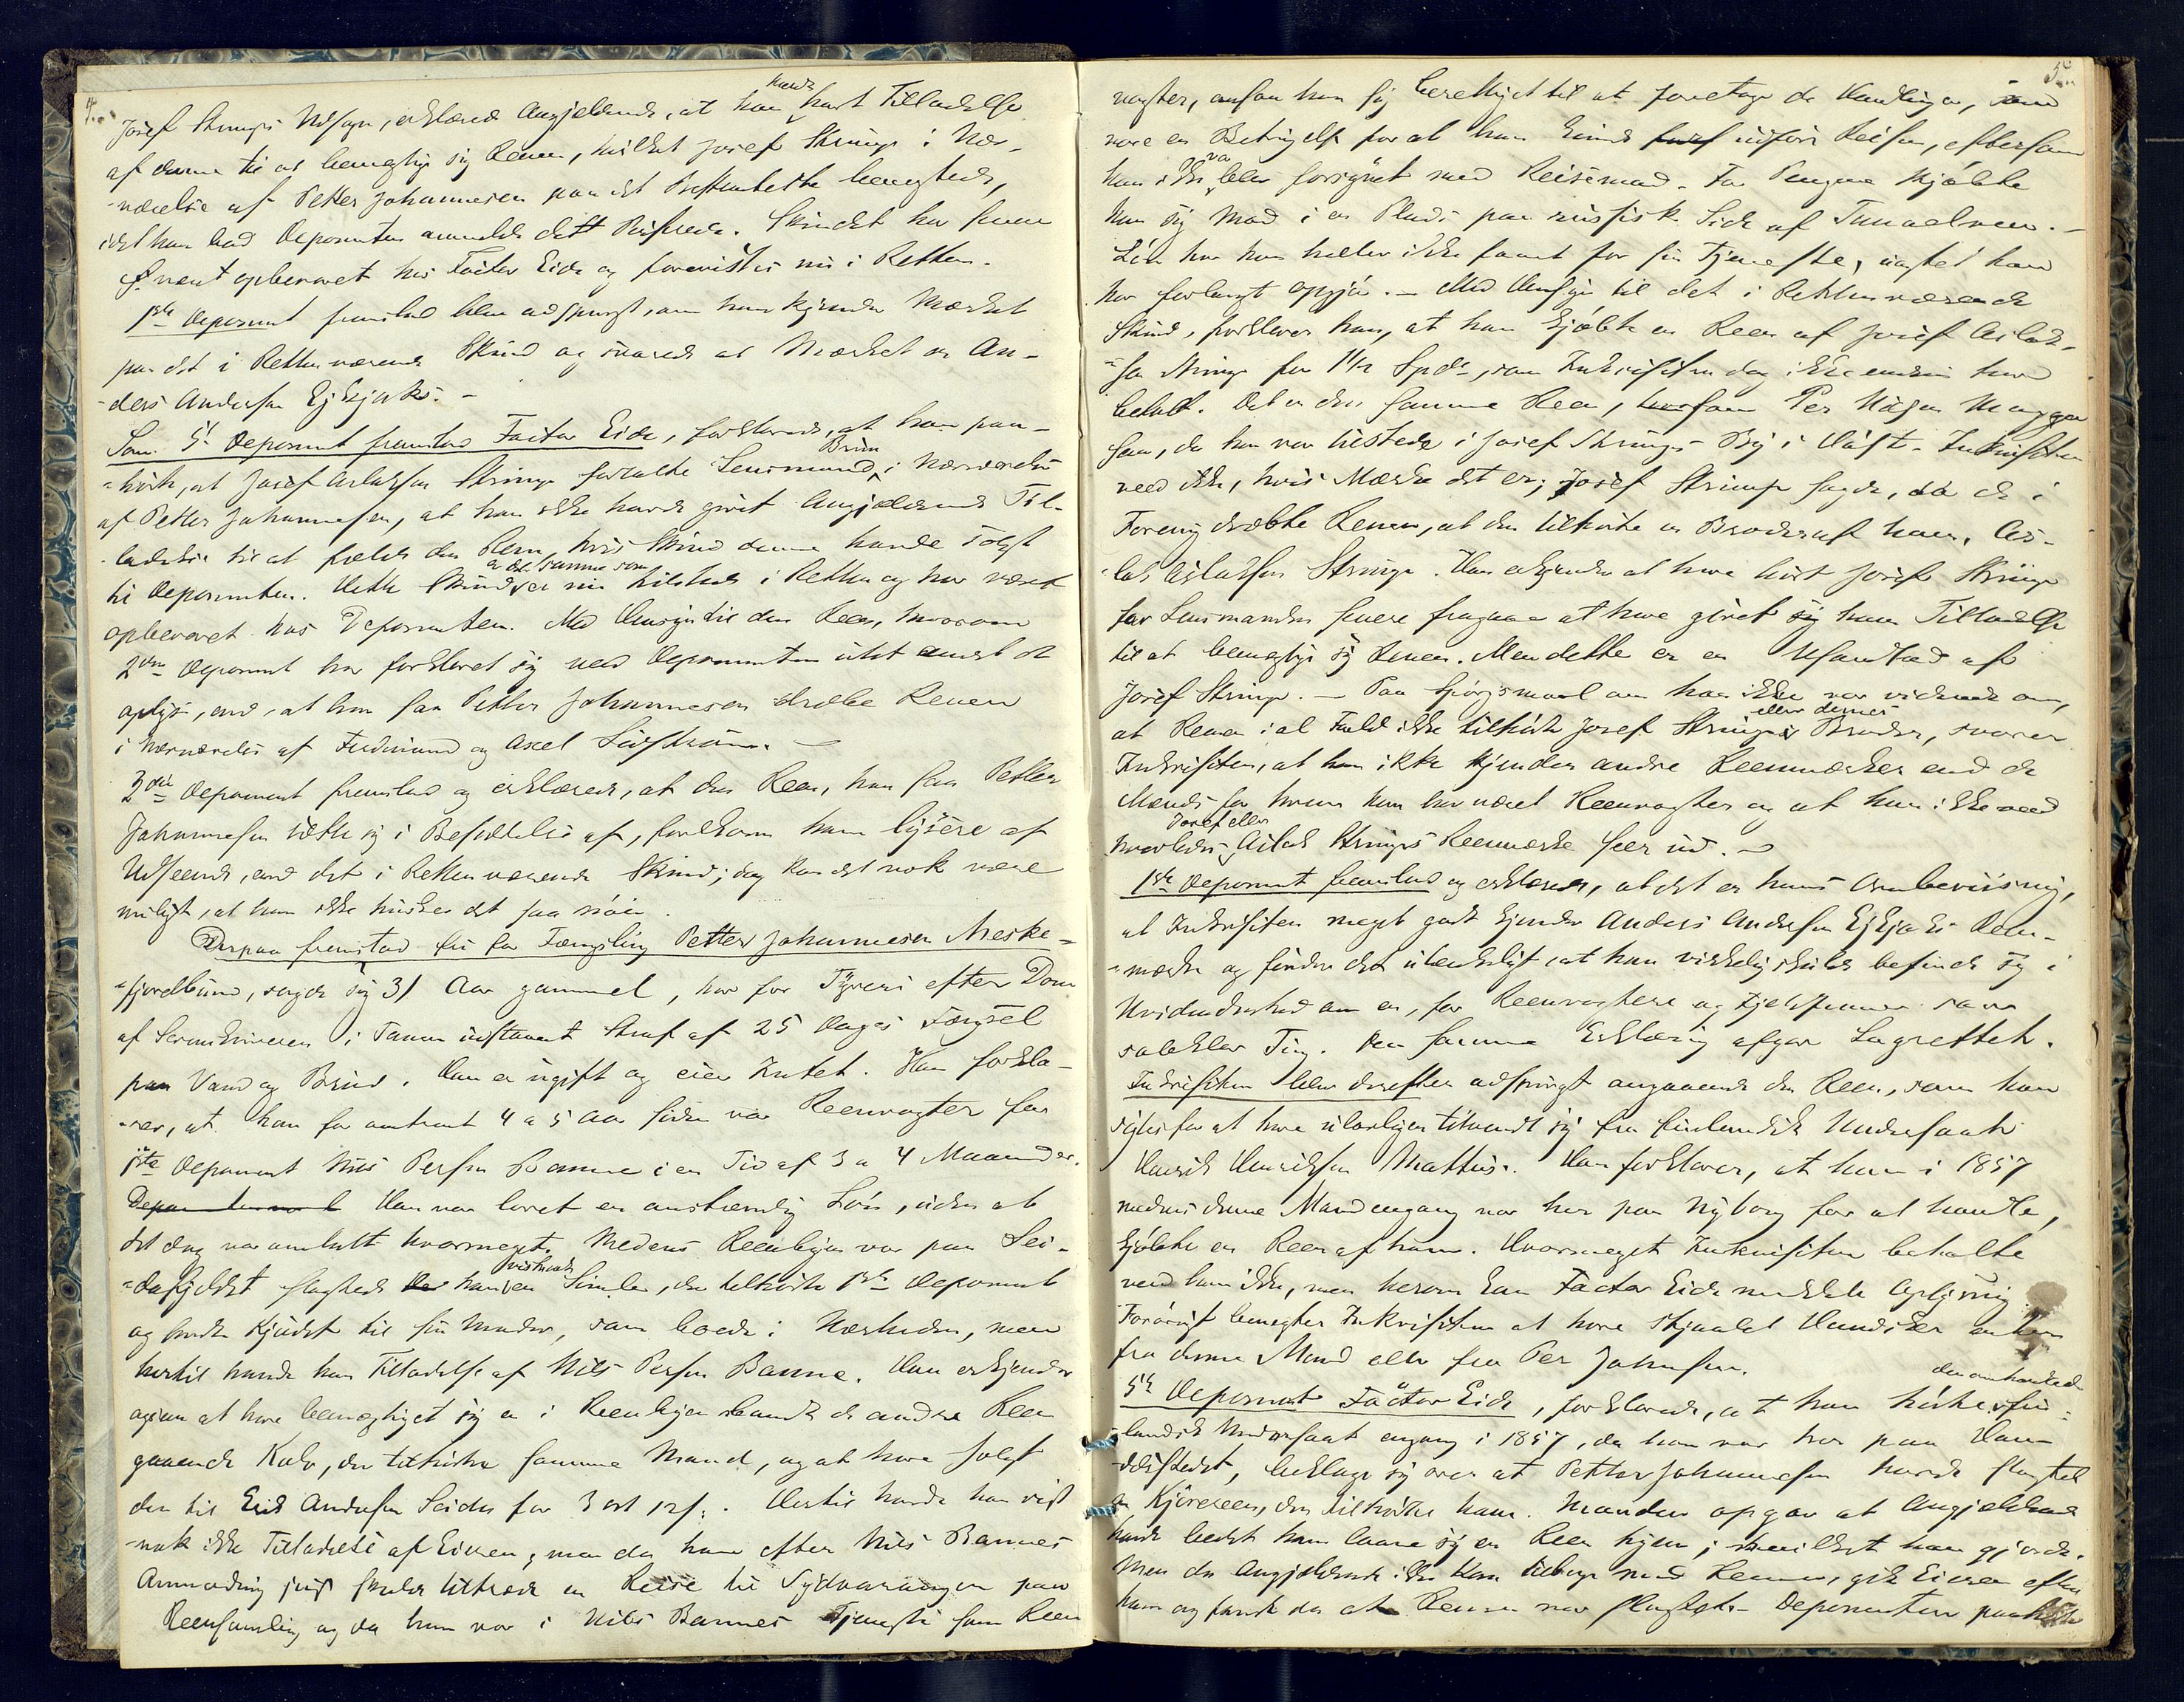 4.
Josef Strings Udsagn, erklærede Angjeldende, at han havde havt Tilladelse
af denne til at bemægtige sig Renen, hvilket Josef Strings i Nær-
-værelse af Petter Johannesen paa det Bestemteste benegtede,
idet han bad Deponenten anmelde dette Reistyveri. Skindet har siden
været opbevaret hos Factor Eide og forevistes nu i Retten.
1ste Deponent fremstod blev adspurgt, om han kjender Mærket
paa det i Retten værende Skind og svarede at Mærket er An-
-ders Andersen Ejkjaks. -
Som 5te Deponent fremstod Factor Eide, forklarede, at han paa-
-hørte, at Josef Aslaksen Strings fortalte Lensmand Brun i Nærværelse
af Petter Johannesen, at han ikke havde givet Angjældende Til-
-ladelse til at fælde den Reen, hvis Skind denne havde solgt
til Deponenten. Dette Skind er det samme som er nu tilstede i Retten og har været
opbevaret hos Deponenten. Med Hensyn til den Reen, hvorom
2den Deponent har forklaret sig veed Deponenten intet andet at
oplyse, end, at han saa Petter Johannesen dræbe Renen
i Nærværelse af Ferdinand og Axel Sidstrøm. -
2den Deponent fremstod og erklærede, at den Reen, han saa Petter
Johannesen sætte sig i Besiddelse af, forekom ham lysere af
Udseende, end det i Retten værende Skind; dog kan det nok være
muligt, at han ikke husker det saa nøie.
Derpaa fremstod fri for Fængsling Petter Johannesen Meske-
-fjordbund, sagde sig 31 Aar gammel, har for Tyveri efter Dom
af Sorenskriveren i Tanen udstaaet Straf af 25 Dages Fængsel
paa Vand og Brød. Han er ugift og eier Intet. Han forkla-
-rer, at han for omtrent 4 a 5 Aar siden var Reenvogter for
1ste Deponent Nils Persen Banne i en Tid af 3 a 4 Maaneder.
Han var lovet en anstændig Løn, uden at
det dog var omtalt hvormeget. Medens Reenbyen var paa Sei-
-dafjeldet slagtede han vistnok en Simle, der tilhørte 1ste Deponent
og bragte Kjødet til sin Moder, som boede i Nærheden, men
hertil havde han Tilladelse af Nils Persen Banne. Han erkjender
ogsaa at have bemægtiget sig en i Reenbyen blandt de andre Reen
gaaende Kalv, der tilhørte samme Mand, og at have solgt
den til Erik Andersen Seida for 3 ort 12 s. Hertil havde han vist
-nok ikke Tilladelse af Eieren, men da han efter Nils Bannes
Anmodning just skulde tiltræde en Reise til Sydvaranger paa
Reensamling og da han var i Nils Bannes Tjeneste som Reen
5.
vogter, ansaa han sig berettiget til at foretage de Handlinger, som
vare en Betingelse for at han kunde udføre Reisen, eftersom
han ikke var blev forsynet med Reisemad. For Pengene kjøbte
han sig Mad i en Plads paa russisk Side af Tanaelven. -
Løn har han heller ikke faaet for sin Tjeneste, uagtet han
har forlangt Opgjør. - Med Hensyn til det i Retten værende
Skind, forklarer han, at han kjøbte en Reen af Josef Aslak-
-sen Strings for 1 1/2 Spd, som Inkvisiten dog ikke endnu har
betalt. Det er den samme Reen, som Per Nilsen Magga
saa, da han var tilstede i Josef Strings By i Høst. Inkvisiten
veed ikke, hvis Mærke det er; Josef Strings sagde, da de i
Forening dræbte Renen, at den tilhørte en Broder af ham, As-
-lak Aslaksen Strings. Han erkjender at have hørt Josef Strings
for Lensmanden senere fragaae at have givet ham Tilladelse
til at bemægtige sig Renen. Men dette er en Usandhed af
Josef Strings. - Paa Spørgsmaal om han ikke var vidende om,
at Renen i al Fald ikke tilhørte Josef Strings eller dennes Broder, svarer
Inkvisiten, at han ikke kjender andre Reenmærker end de
Mænds for hvem han har været Reenvogter og at han ikke veed
hvorledes Josef eller Aslak Strings Reenmærke seer ud. -
1ste Deponent fremstod og erklærede, at det er hans Overbeviisning,
at Inkvisiten meget godt kjender Anders Andersen Ejkjaks Reen-
-mærke og finder det utænkeligt at han virkelig skulde befinde sig i
Uvidenhed om en, for Reenvogtere og Fjeldfinner saa
vel klar Ting. Den samme Erklæring afgav Lagrettet.
Inkvisiten blev derefter adspurgt angaaende den Reen, som han
sigtes for at have ulovligen tilvendt sig fra finlandsk Undersaat
Henrik Henriksen Mattus. Han forklarer, at han i 1857
medens denne Mand engang var her paa Nyborg for at handle,
kjøbte en Reen af ham. Hvormeget Inkvisiten betalte
veed han ikke, men herom kan Factor Eide meddele Oplysning.
Forøvrigt benegter Inkvisiten at have stjaalet
fra denne Mand eller fra Per Johnsen.
5te Deponent Factor Eide, forklarede, at han hørte den omhandlede fin-
-landsk Undersaat engang i 1857, da han var her paa Han-
-delsstedet, beklage sig over at Petter Johannesen havde slagtet
en Kjørereen, der tilhørte ham. Manden opgav at Angjeldende
havde bedet ham laane sig en Reen hjem, hvilket han gjorde.
Men da Angjeldende ikke kom tilbage med Renen, gik Eieren efter
ham og fandt da at Renen var slagtet. Deponenten paahørte